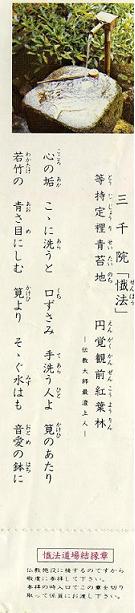 三千院「懺法」
等持定裡青苔地 円覚観前紅葉林
―伝教大師最澄上人―
心の垢 こゝに洗うと 口ずさみ 手洗う人よ 筧のあたり
若竹の 青さ目にしむ 筧より そゝぐ水はも 音愛の鉢に
懺法道場結縁章
するのですから
敬虔に参拝して下さい。
参拝の時入口でこの章を切り
取って係員にお渡し下さい。